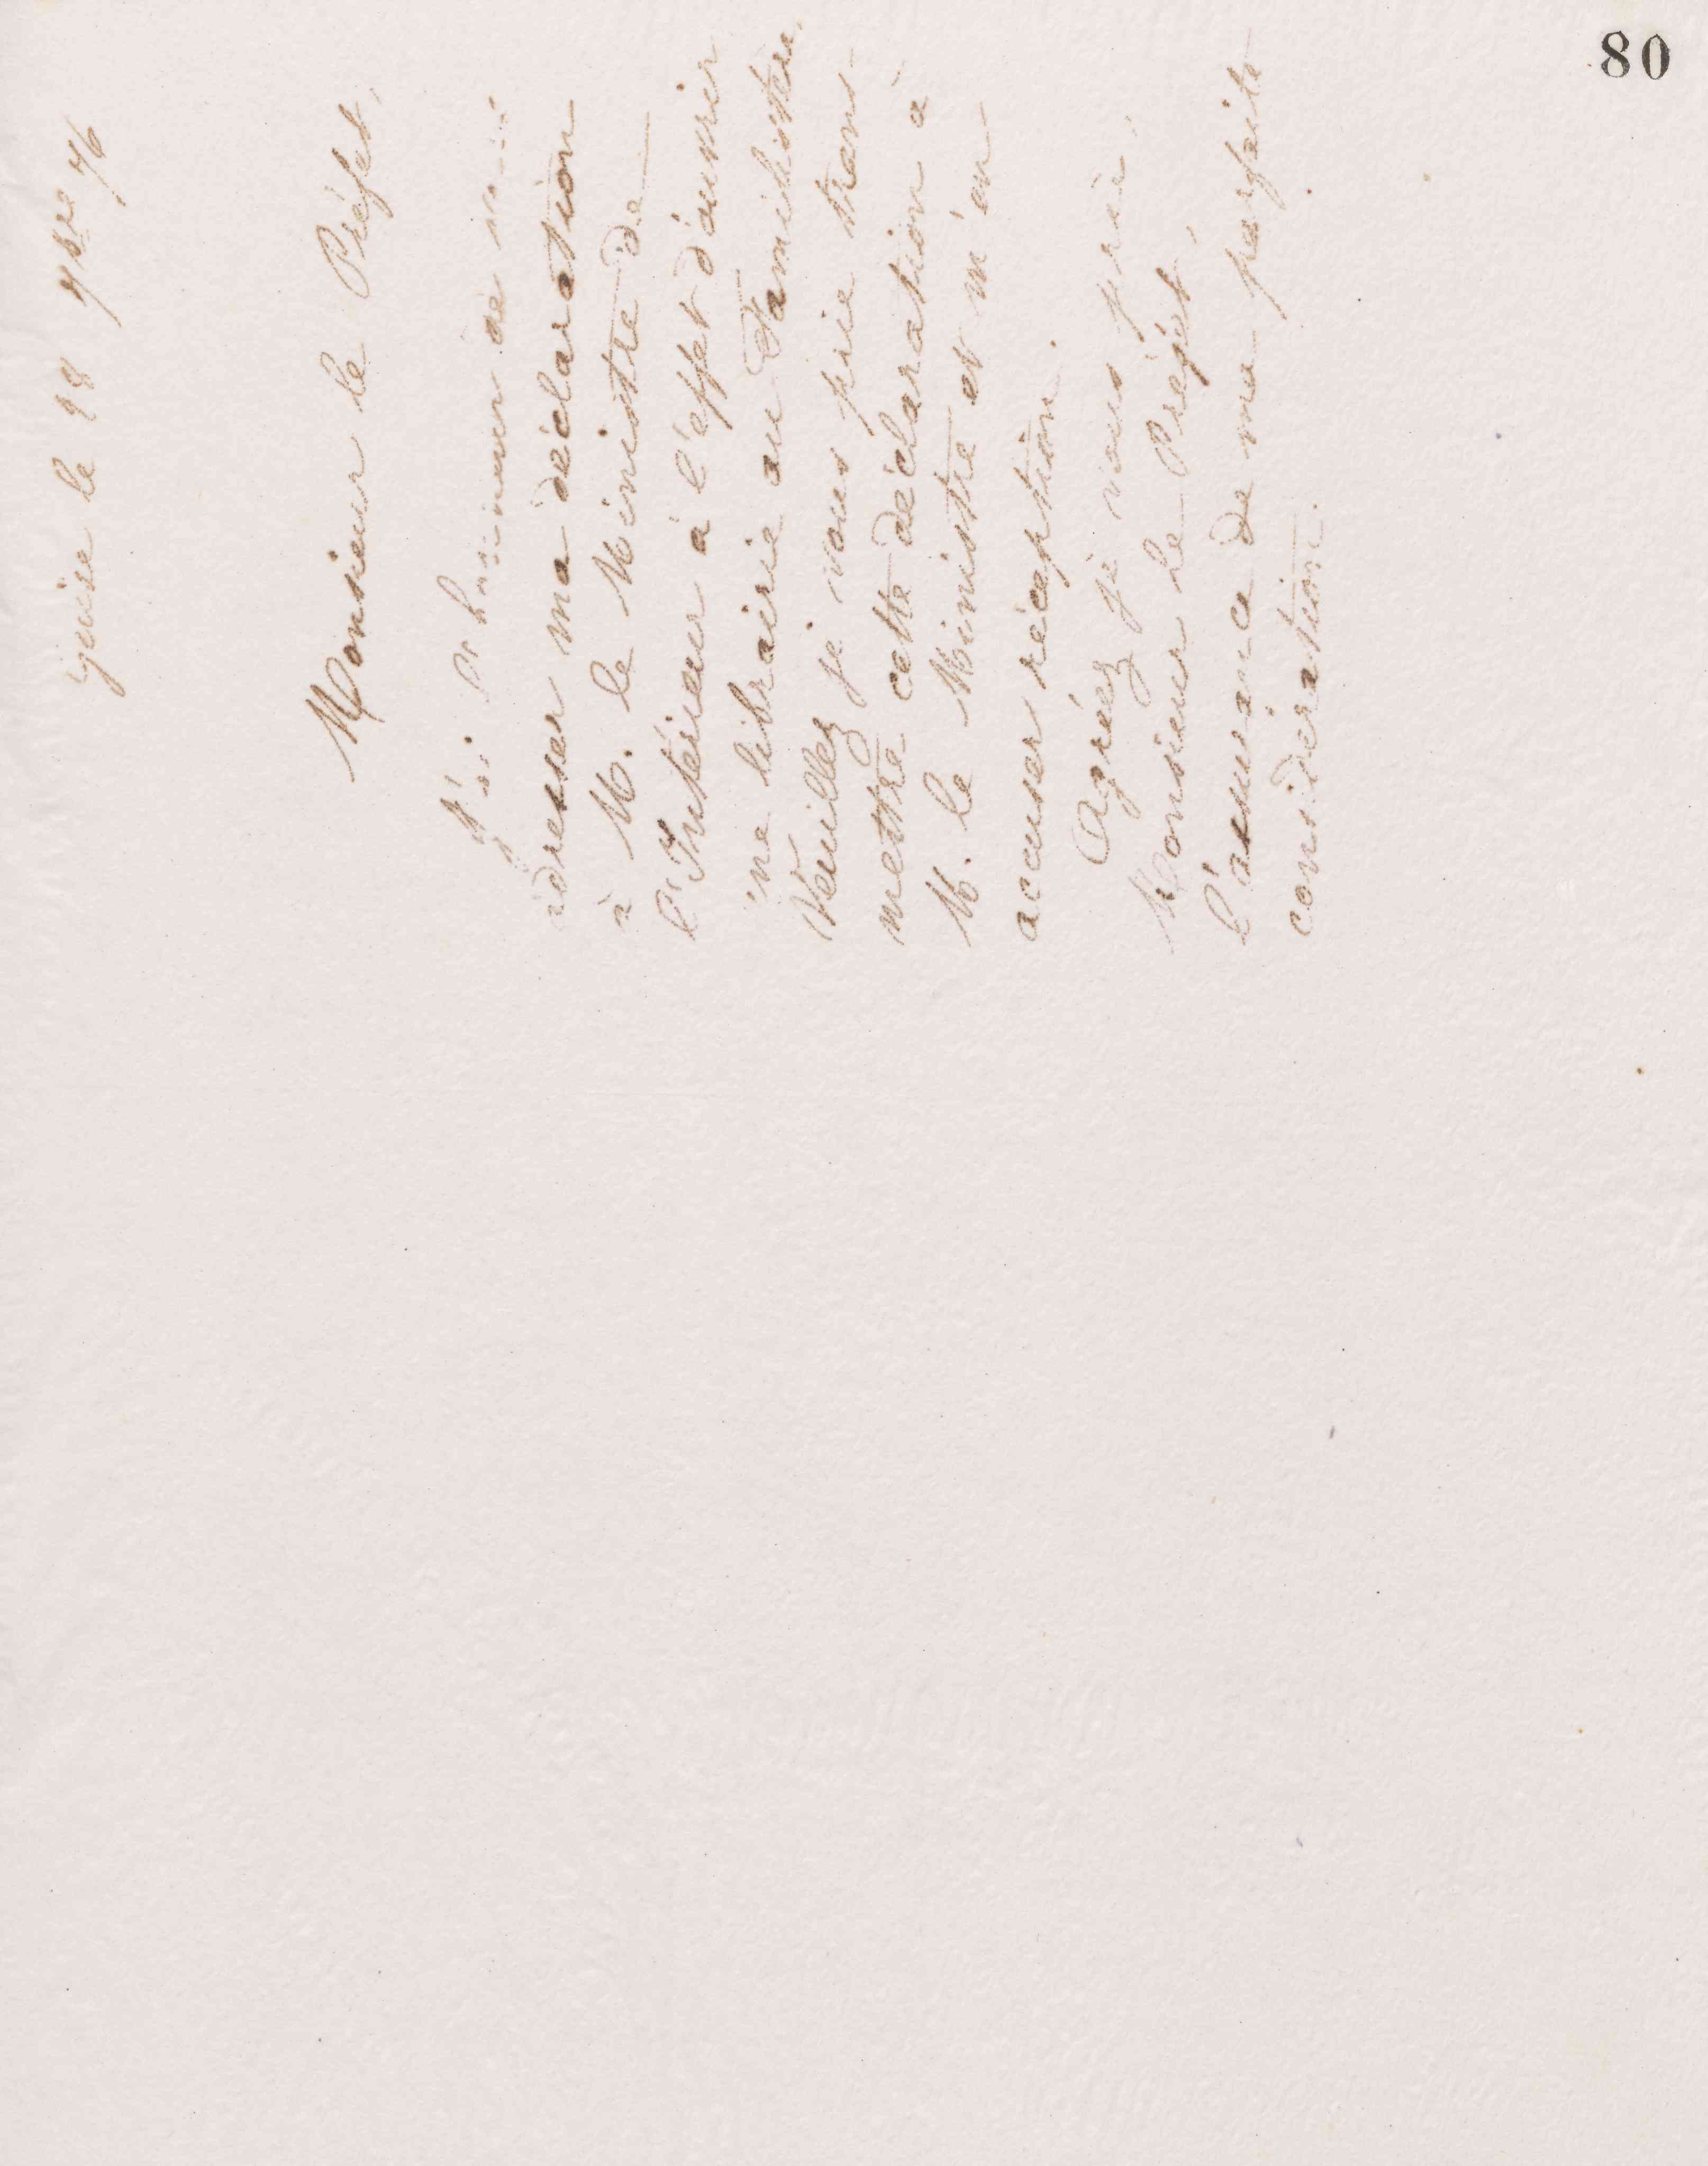 80
guise le 28 7bre 76
Monsieur le Préfet,
J'ai l'honneur de
adresser ma déclaration
à M. le Ministre de
l'Intérieur à l'effet d'ouvrir
une librairie au Familistère.
Veuillez je vous prie trans-
mettre cette déclaration à
M. le Ministre et m'en
accuser réception.
Agréez je vous prie,
Monsieur le Préfet,
l'assurance de ma parfaite
considération.